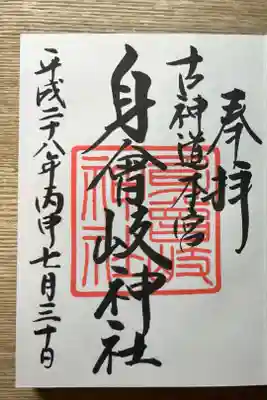 奉拝
古神道本宮
身曾岐神社
平成二十八年丙申七月三十日